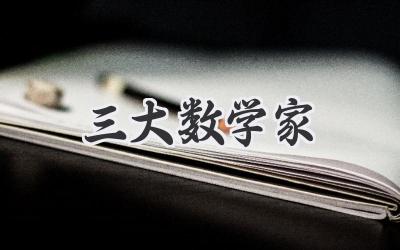 三大数学家